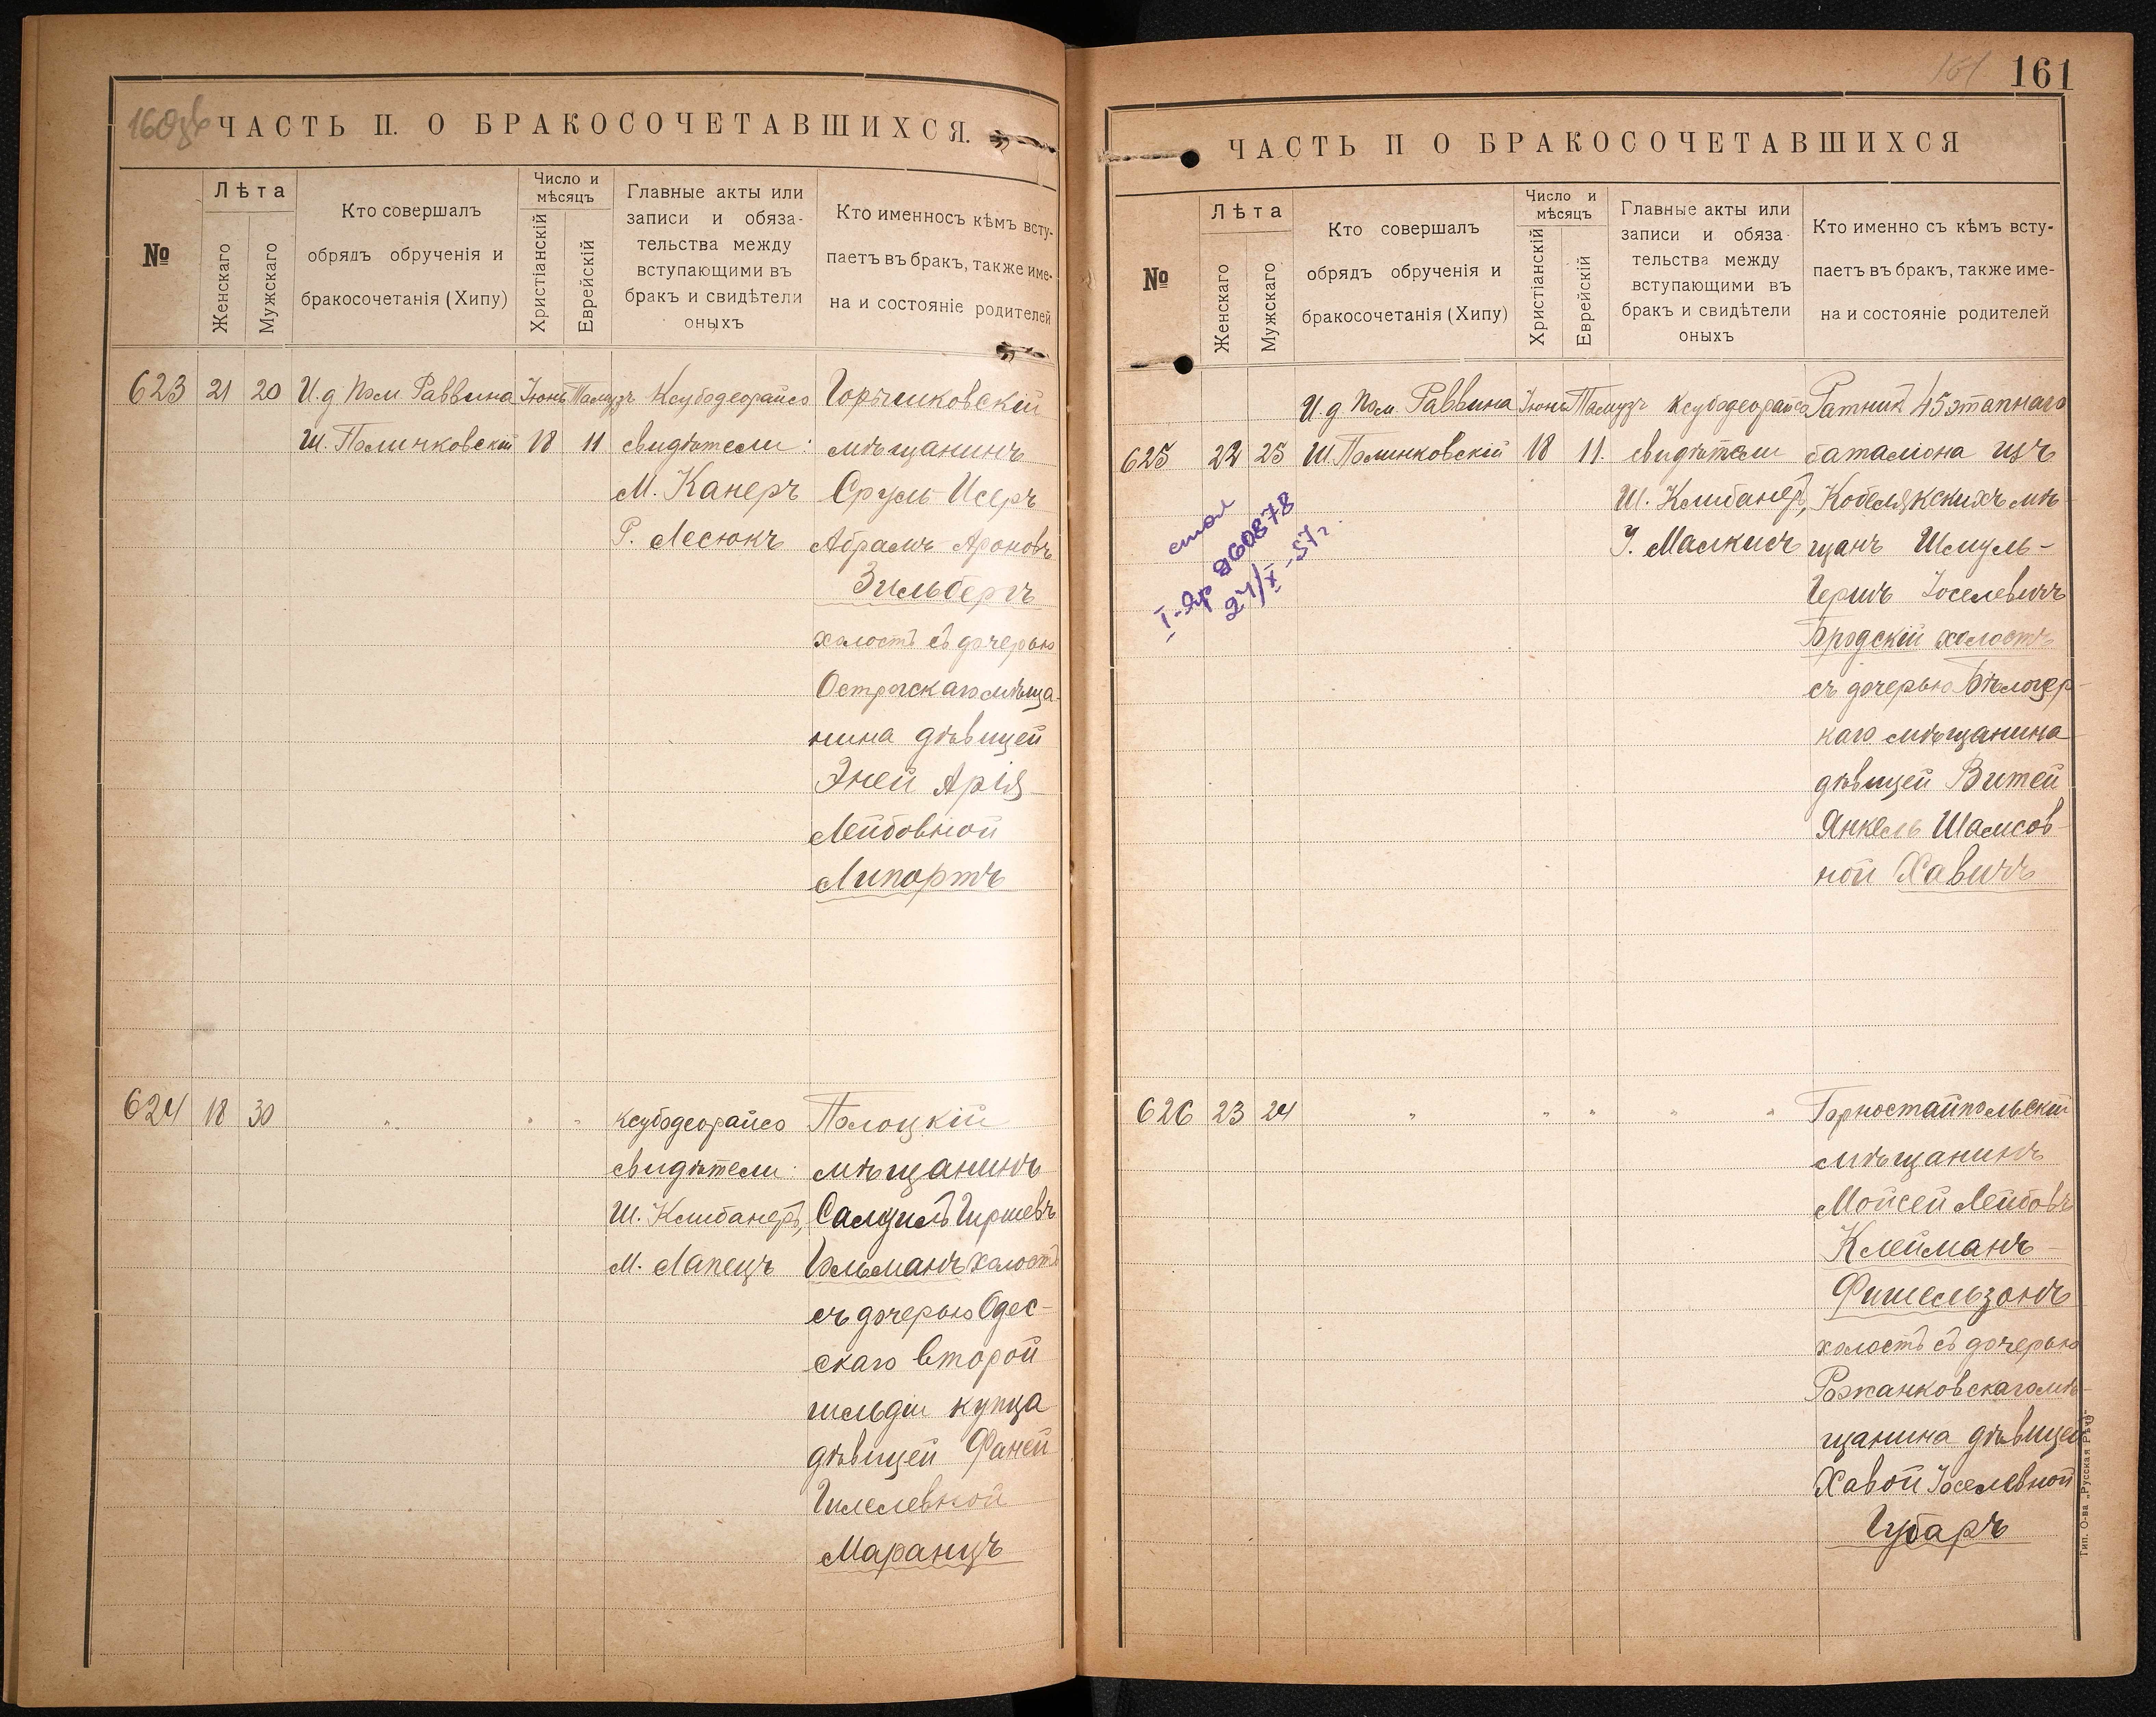 160об
ЧАСТЬ II. О БРАКОСОЧЕТАВШИХСЯ.
№
Лѣта
Женскаго
Мужскаго
Кто совершалъ
обрядъ обрученія и
бракосочетанія (Хипу)
Число и
мѣсяцъ
Христіанскій
Еврейскій
Главные акты или
записи и обяза-
тельства между
вступающими въ
бракъ и свидѣтели
оныхъ
Кто именносъ кѣмъ всту-
паетъ въ бракъ, также име-
на и состояніе родителей
623 21 20 И.д Пом Раввина Іюнь Тамузъ Ксубодеорайсо
Ш. Полинковскій 18 11 свидѣтели:
М. Канеръ
Р. Лесюкъ
мѣщанинъ
Сруль-Исеръ
Абрамъ-Ароновъ
Зильбергъ
холостъ съ дочерью
Острогскаго мѣща-
нина дѣвицей
Эней Арія-
Лейбовной
Липортъ
624 18 30 " " "
Ксубодеорайсо
свидѣтели:
Ш. Клибанеръ,
М. Лапецъ
Полоцкій
мѣщанинъ
Гиршевъ
Гельманъ холостъ
съ дочерью Одес-
скаго второй
гильдіи купца
дѣвицей Фаней
Гилелевной
Маранцъ
161
161
ЧАСТЬ II О БРАКОСОЧЕТАВШИХСЯ
№
Лѣта
Женскаго
Мужскаго
Кто совершалъ
обрядъ обрученія и
бракосочетанія (Хипу)
Число и
мѣсяцъ
Христіанскій
Еврейскій
Главные акты или
записи и обяза-
тельства между
вступающими въ
бракъ и свидѣтели
оныхъ
Кто именно съ кѣмъ всту-
паетъ въ бракъ, также име-
на и состояніе родителей
И.д Пом. Раввина Іюнь Тамузъ Ксубодеорайсо
625 22 25 Ш. Полинковскій 18 11. свидѣтели
Ш. Клибанеръ,
У. Малкисъ
Ратникъ 45 этапнаго
баталіона изъ
Кобелякскихъ мѣ-
щанъ Шмуль-
Гершъ Іоселевичъ
Бродскій холостъ
съ дочерью Бѣлоцер-
каго мѣщанина
дѣвицей Витей
Янкель Шамсов-
ной Хавичъ
I-Яр 260878
27/X-57г.
626 23 24 " " " " "
Горностайпольскій
мѣщанинъ
Мойсей Лейбовъ
Клейманъ-
Фишельзонъ
холостъ съ дочерью
Рожанковскаго мѣ-
щанина дѣвицей
Хавой Іоселевной
Губаръ
Тип. О-ва „Русская Рѣчь"